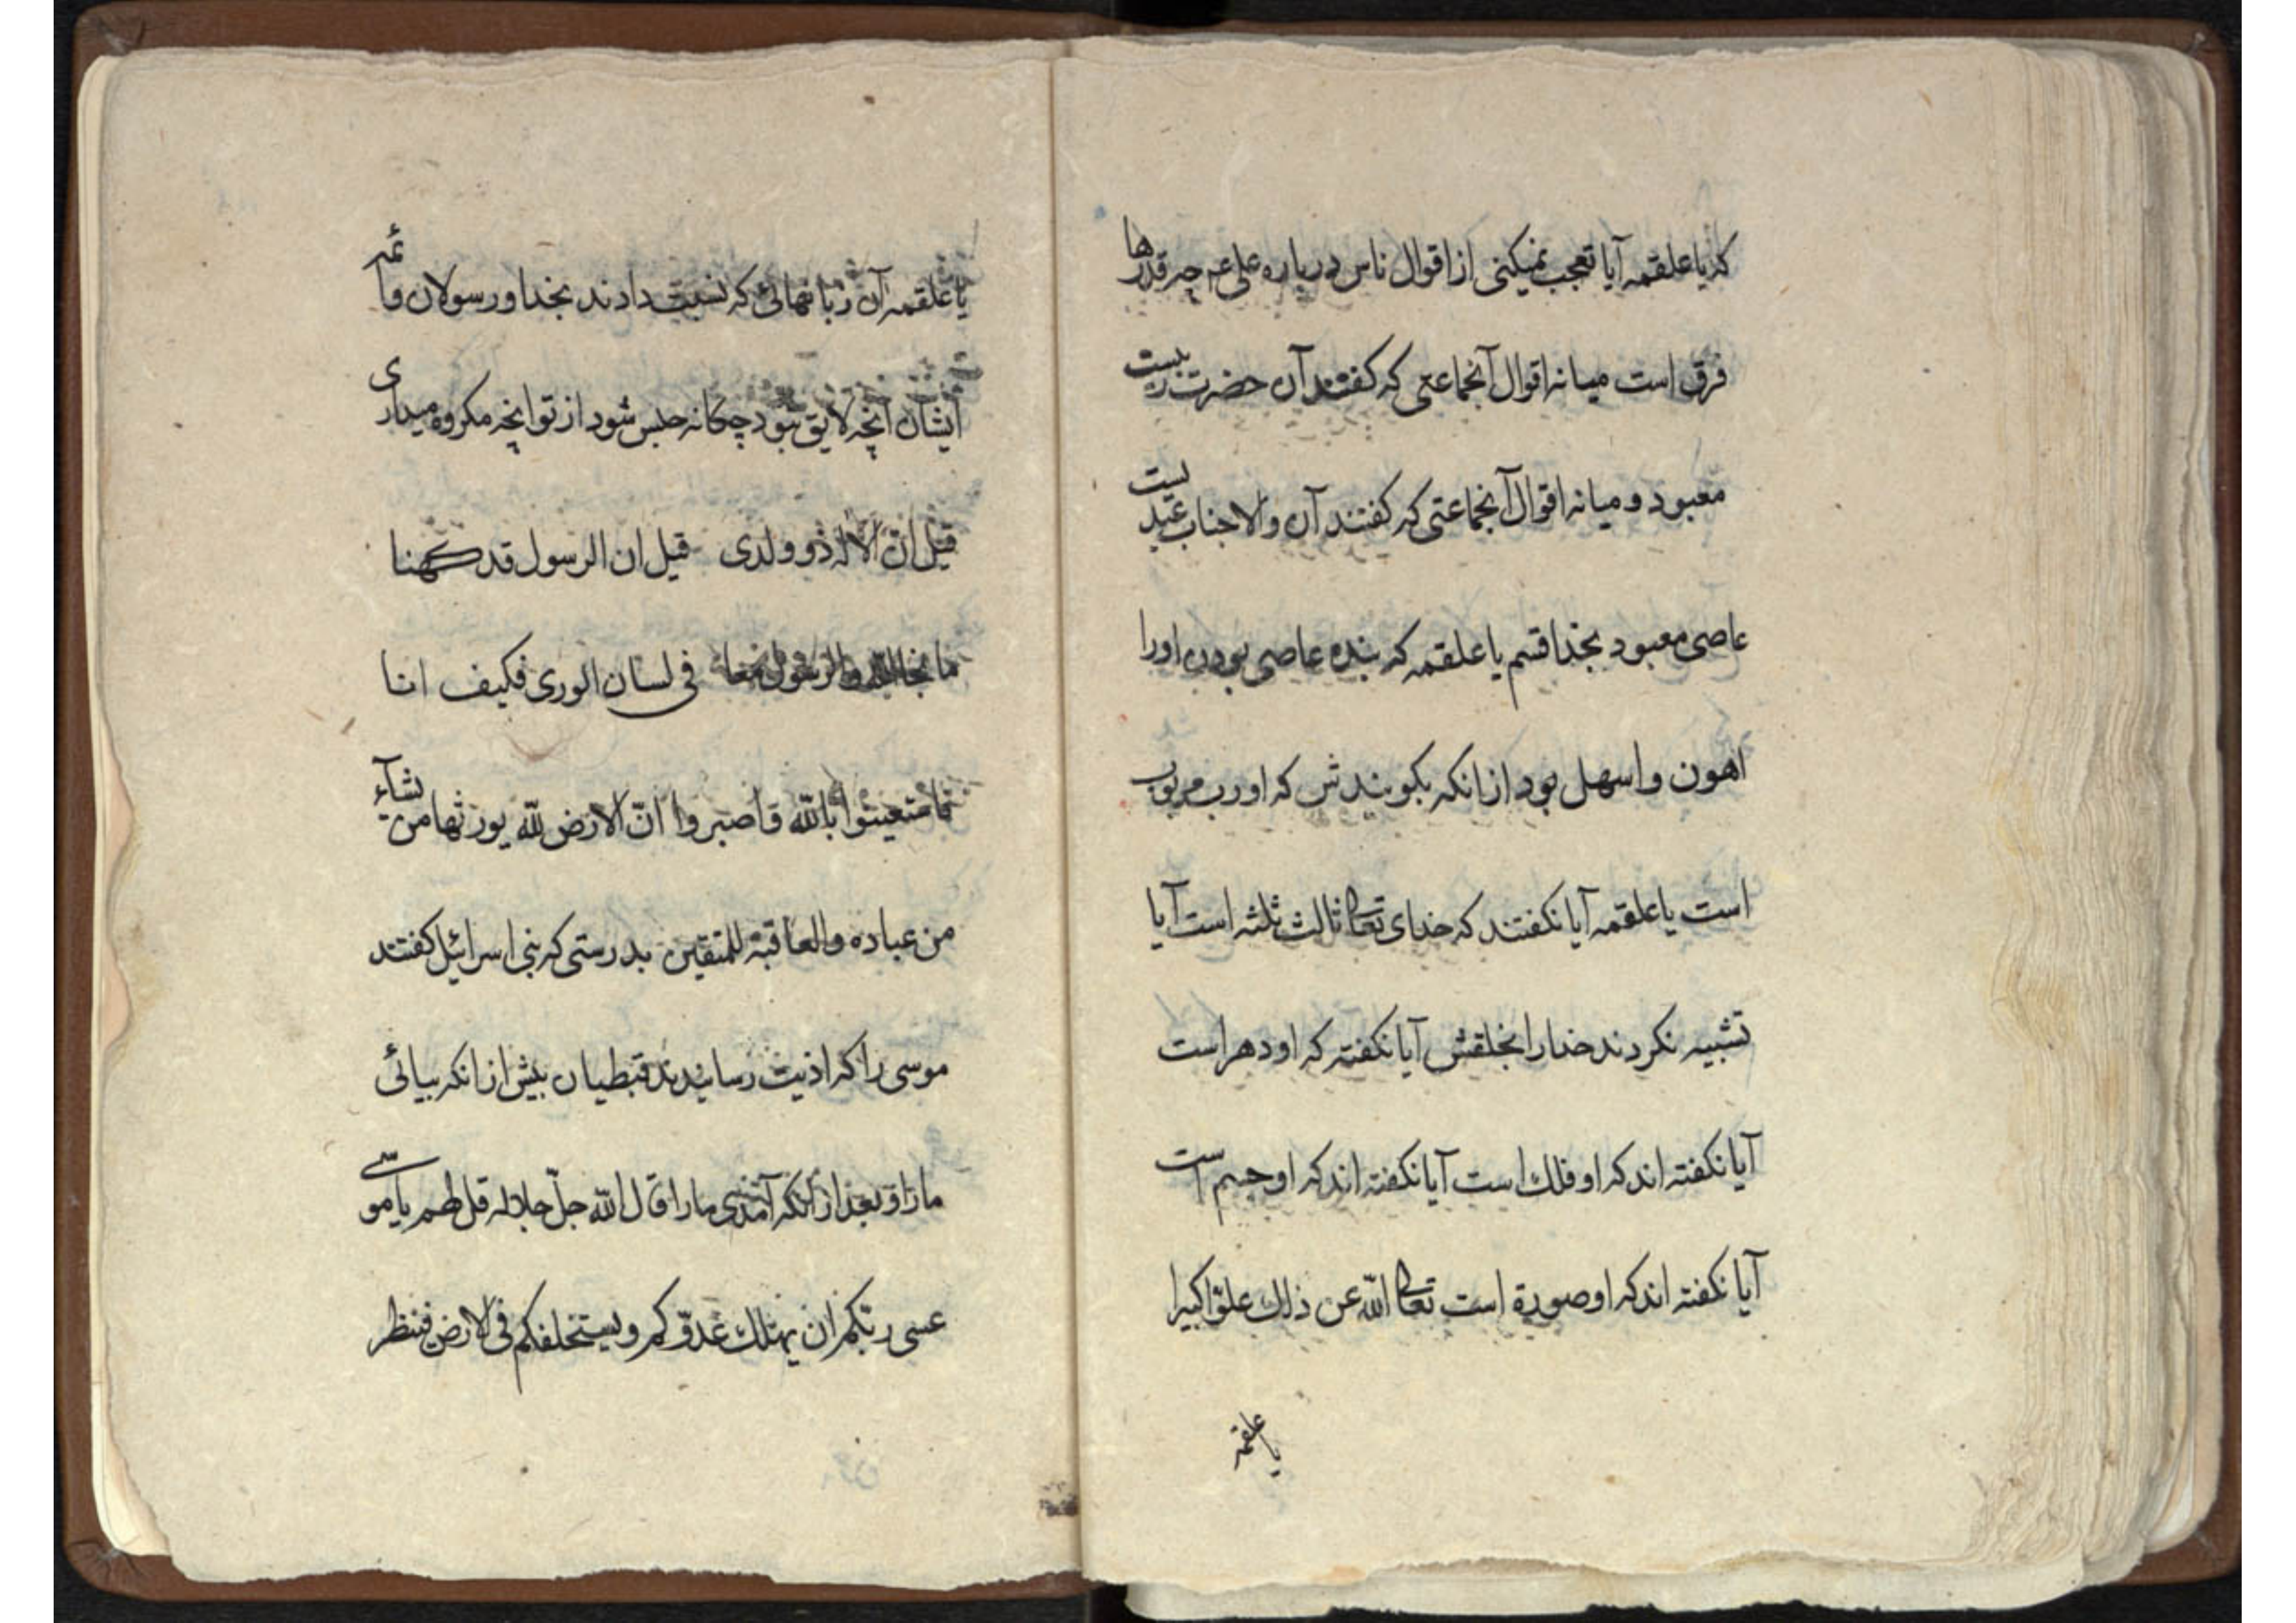 که یا علقمه آیا تعجب نمیکنی از اقوال ناس درباره علی عم چرقدرها
فرق است میانه اقوال آنجماعتی که کفتند آن حضرت ربیست
معبود و میانه اقوال آنجماعتی که کفتند آن والاجناب عبدیست
عاصی معبود بخدا قسم یا علقمه که بنده عاصی بودن اورا
اهون و اسهل بود ازانکه بکویندش که او رب مربوب
است یا علقمه آیا نکفتند که خدای تعالی ثالث ثلثه است آیا
تشبیه نکردند خدارا بخلقش آیا نکفته که او دهر است
آیا نکفته اند که او فلك است آیا نکفته اند که او جسم است
آیا نکفته اند که او صورة است تعالی الله عن ذلك علوّا کبیرا
یا علقمه
یا علقمه آن زبانهائی که نسبت دادند بخدا و رسولان و ائمه
ایشان آنچه لایق نبود چکانه حبس شود از تو انچه مکروه میداری
قیل انّ الاله ذو ولدی قیل ان الرسول قد کهنا
ما نجا الله والرسول معا فی لسان الوری فکیف انا
فاستعینوا بالله واصبروا انّ الارض لله یورثها من یشآء
من عباده والعاقبة للمتقین بدرستی که بنی اسرائیل کفتند
موسی را که اذیت رسانیدند قبطیان پیش ازانکه بیائی
مارا و بعد ازانکه آمدی مارا قال الله جلّ جلاله قل لهم یا موسی
عسی ربّکم ان یهلك عدوّکم ویستخلفکم فی الارض فینظر